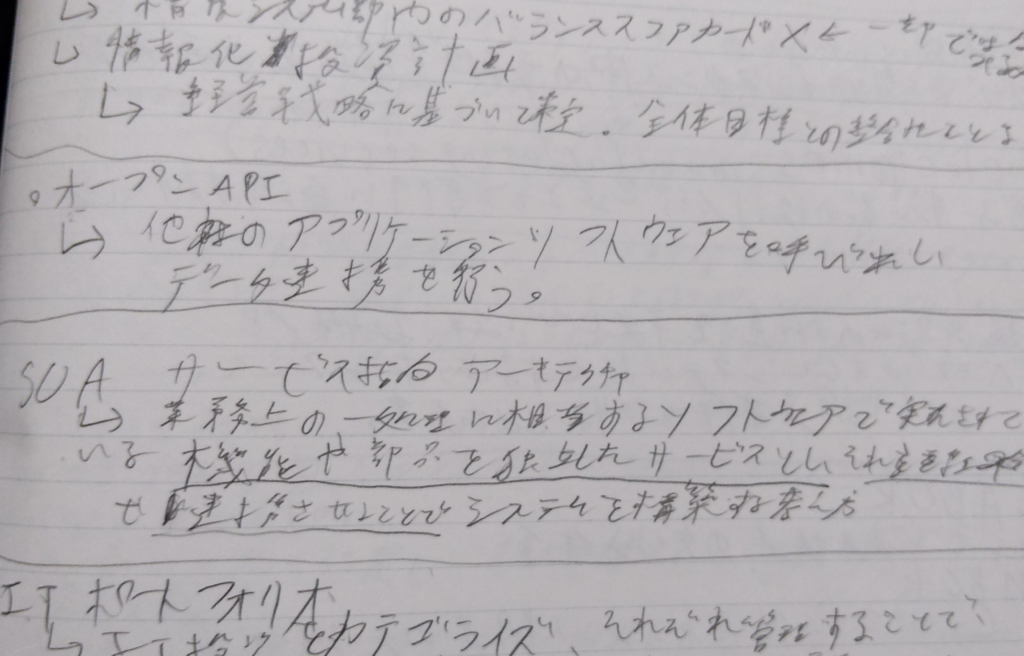 ↳ 情報システム部内のバランススコアカード × ← 一部で
↳ 情報化投資計画
↳ 経営戦略に基づいて策定。全体目標との整合性をとる
。オープンAPI
↳ 他社のアプリケーションソフトウェアを呼び出し
データ連携を行う。
SOA サービス指向アーキテクチャ
↳ 業務上の一処理に相当するソフトウェアで実現されて
いる 機能や部品を独立したサービスとし、それを組み合わ
せ 連携させることでシステムを構築する考え方
ITポートフォリオ
↳ IT投資をカテゴライズ、それぞれ管理することで、